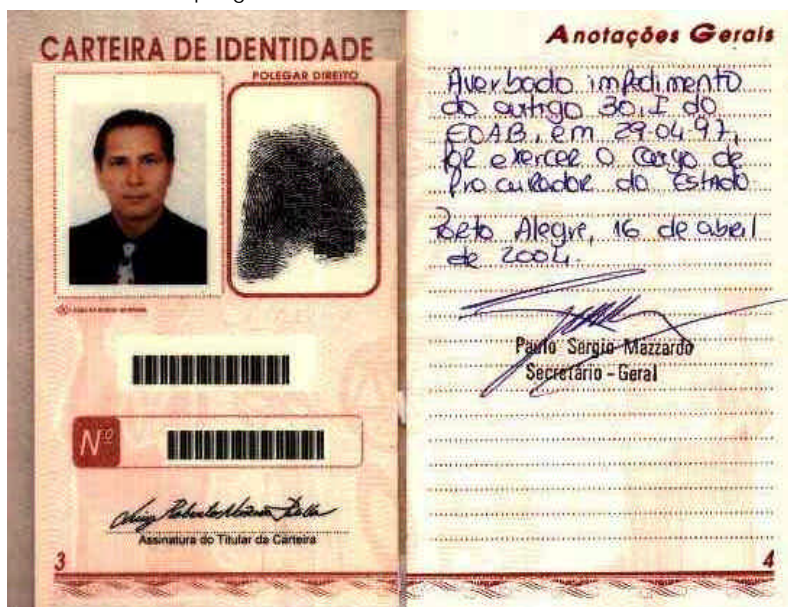 CARTEIRA DE IDENTIDADE
POLEGAR DIREITO
Nº
Assinatura do Titular da Carteira
3
Anotações Gerais
Averbado impedimento
do artigo 30, I do
EOAB, em 29.04.97,
por exercer o cargo de
Procurador do Estado
Porto Alegre, 16 de abril
de 2004.
Paulo Sergio Mazzardo
Secretário - Geral
4